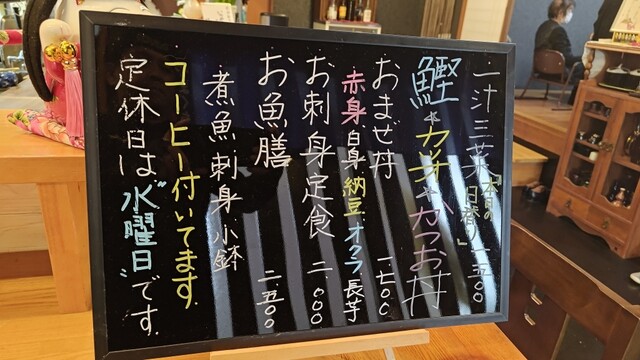 一汁三菜「本日の日替り」一、五〇〇
鰹*カツオ*かつお丼
おまぜ丼 一、七〇〇
赤身 白身 納豆 オクラ 長芋
お刺身定食 二、〇〇〇
お魚膳 二、五〇〇
煮魚 刺身 小鉢
コーヒー付いてます.
定休日は"水曜日"です.